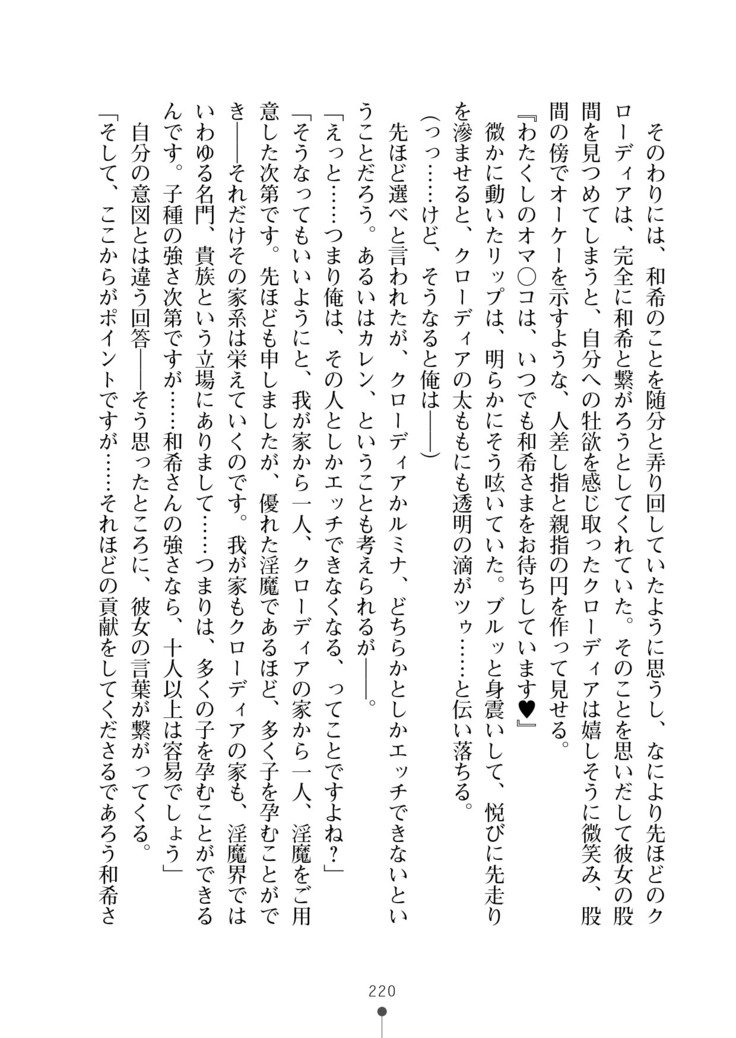 そのわりには、和希のことを随分と弄り回していたように思うし、なにより先ほどのク
ローディアは、完全に和希と繋がろうとしてくれていた。そのことを思いだして彼女の股
間を見つめてしまうと、自分への牡欲を感じ取ったクローディアは嬉しそうに微笑み、股
間の傍でオーケーを示すような、人差し指と親指の円を作って見せる。
『わたくしのオマ〇コは、いつでも和希さまをお待ちしています♥』
微かに動いたリップは、明らかにそう呟いていた。ブルッと身震いして、悦びに先走り
を滲ませると、クローディアの太ももにも透明の滴がツゥ……と伝い落ちる。
(っっ……けど、そうなると俺は――)
先ほど選べと言われたが、クローディアかルミナ、どちらかとしかエッチできないとい
うことだろう。あるいはカレン、ということも考えられるが――。
「えっと……つまり俺は、その人としかエッチできなくなる、ってことですよね？」
「そうなってもいいようにと、我が家から一人、クローディアの家から一人、淫魔をご用
意した次第です。先ほども申しましたが、優れた淫魔であるほど、多く子を孕むことがで
き――それだけその家系は栄えていくのです。我が家もクローディアの家も、淫魔界では
いわゆる名門、貴族という立場にありまして……つまりは、多くの子を孕むことができる
んです。子種の強さ次第ですが……和希さんの強さなら、十人以上は容易でしょう」
自分の意図とは違う回答――そう思ったところに、彼女の言葉が繋がってくる。
「そして、ここからがポイントですが……それほどの貢献をしてくださるであろう和希さ
220